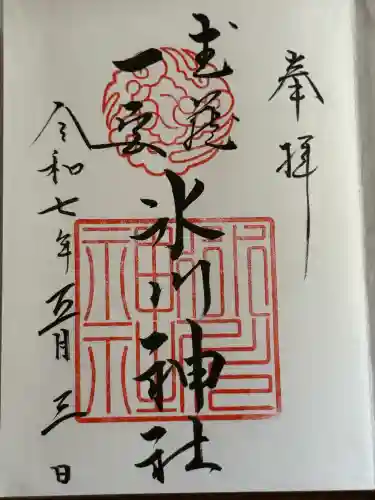 奉拝
武蔵
一宮
氷川神社
令和七年五月三日
氷川
神社